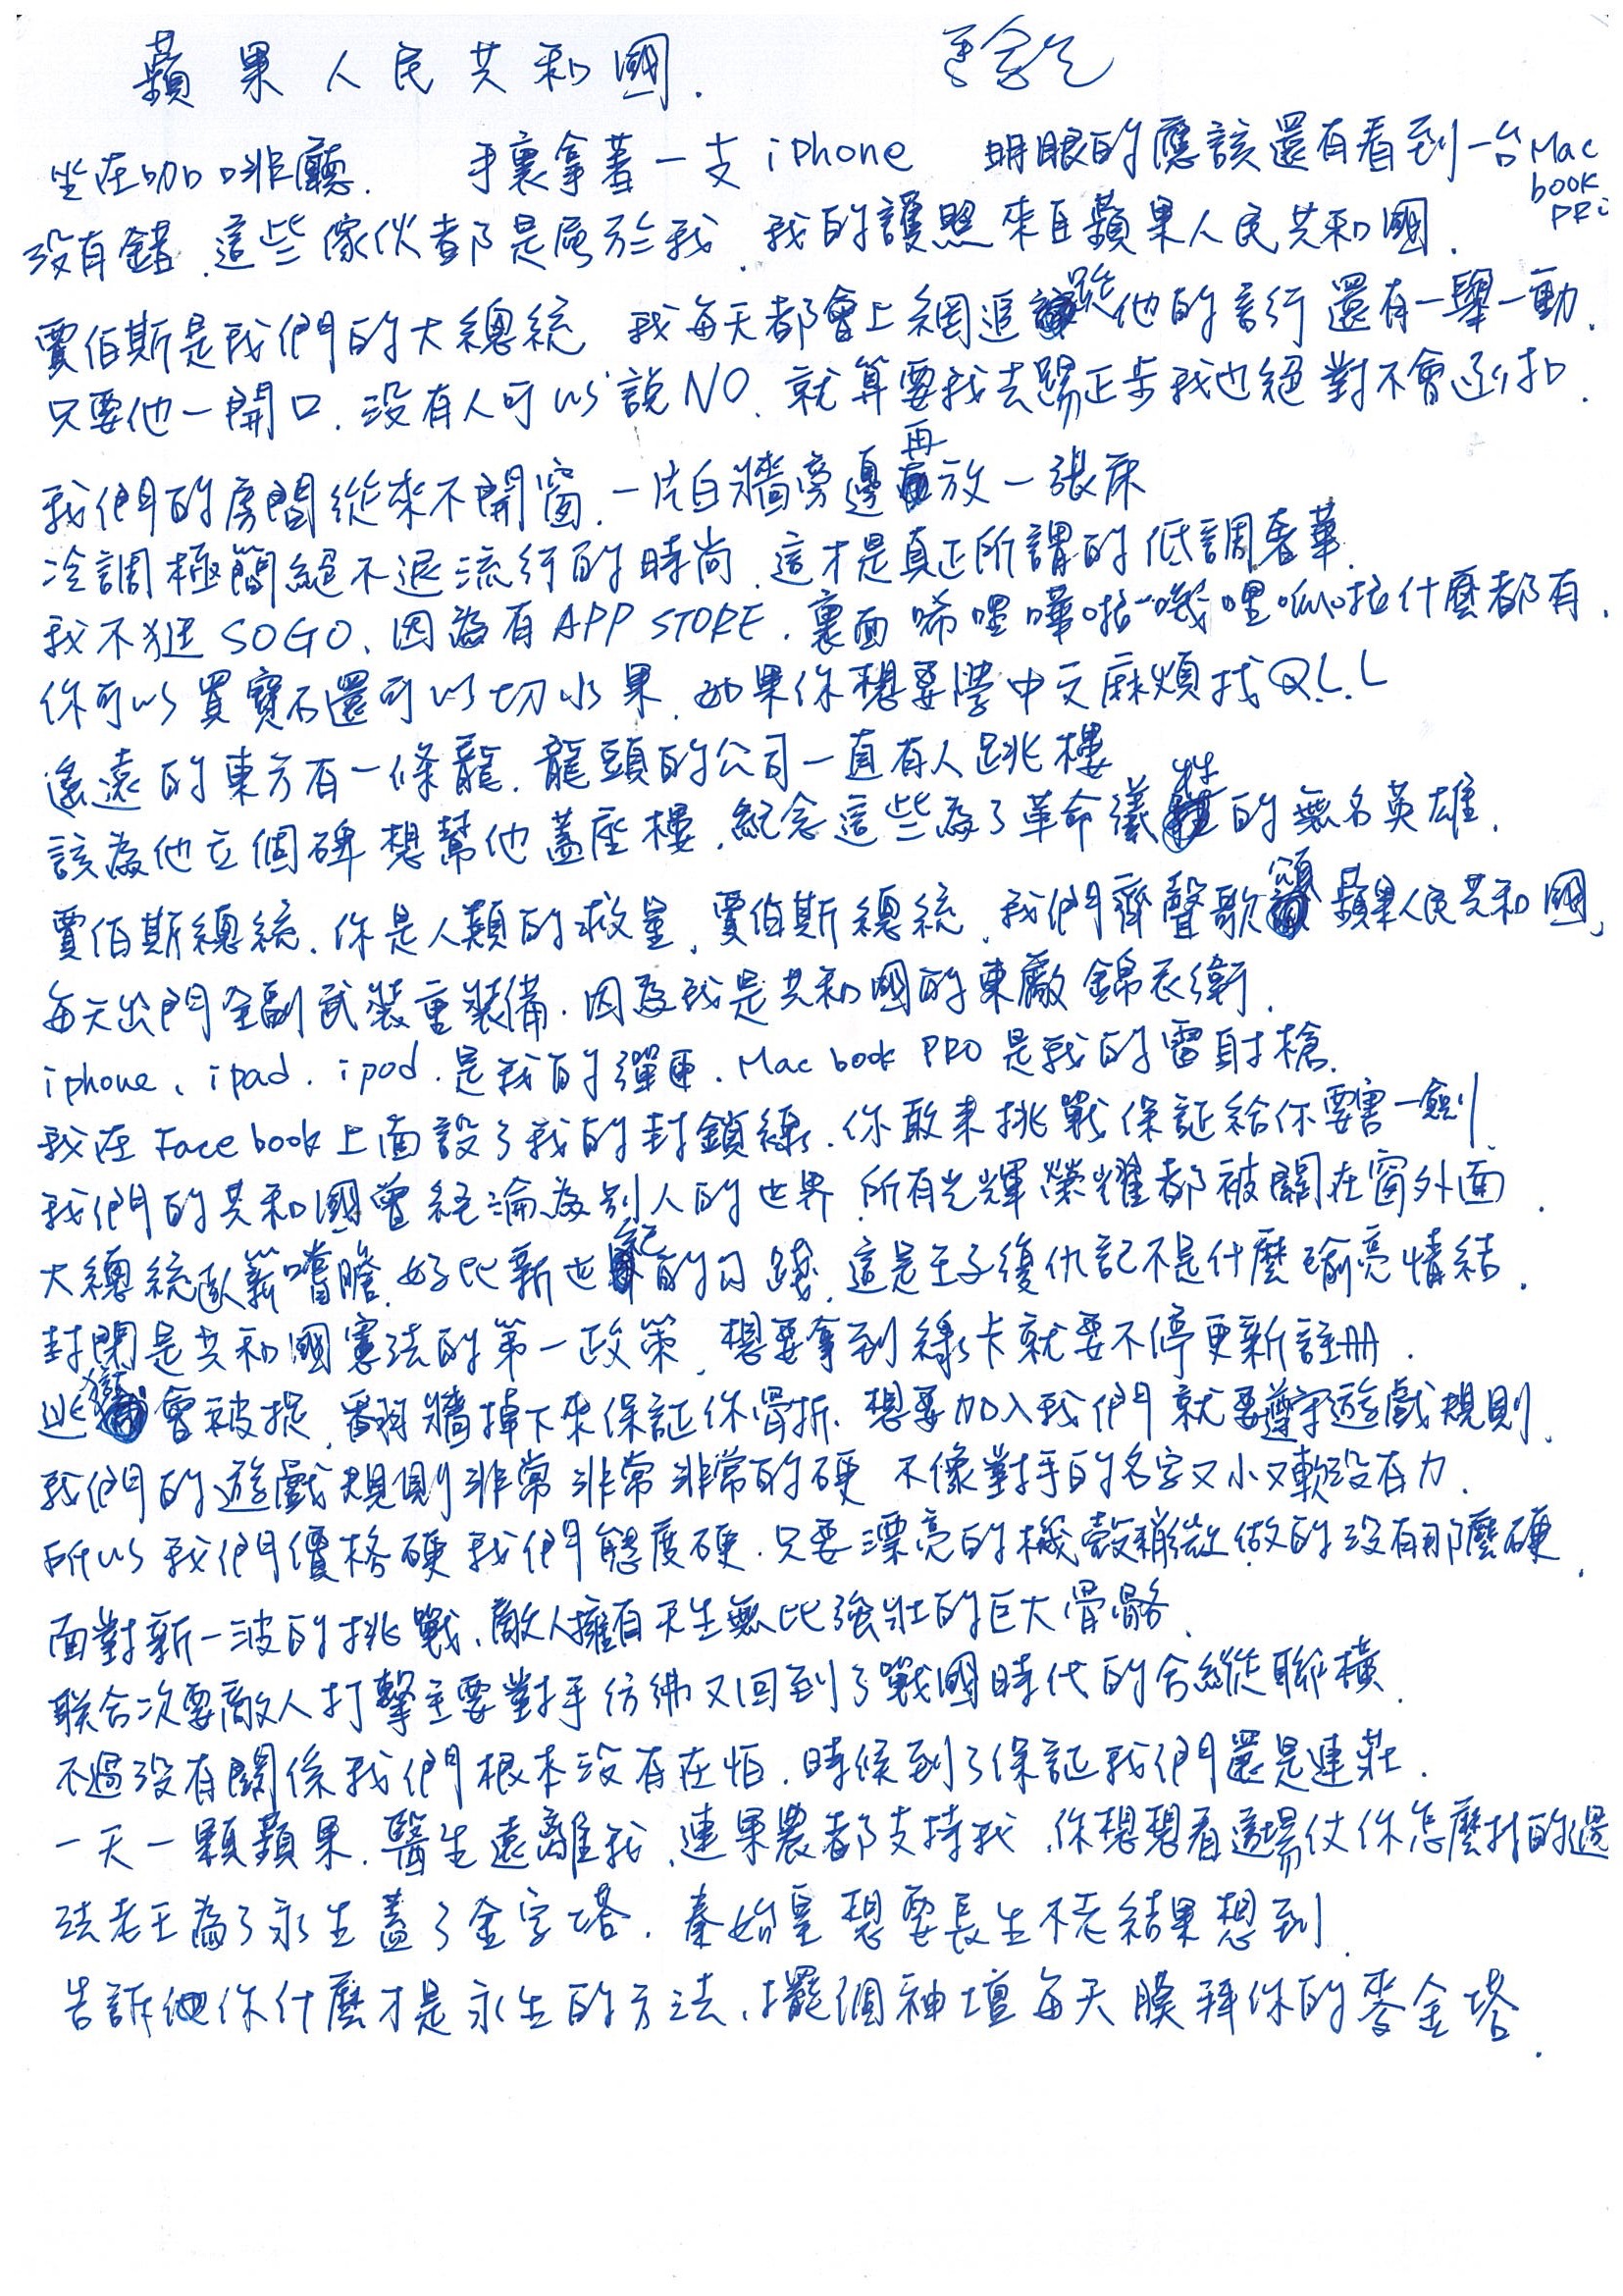 蘋果人民共和國.
坐在咖啡廳. 手裏拿著一支iphone 明眼的應該還有看到一台Mac book PRO
沒有錯.這些傢伙都是屬於我.我的護照來自蘋果人民共和國.
賈伯斯是我們的大總統 我每天都會上網追蹤他的言行還有一舉一動.
只要他一開口.沒有人可以說NO.就算要我去踢正步我也絕對不會函扣.
我們的房間從來不開窗.一片白牆旁邊再放一張床
冷調極簡絕不退流行的時尚.這才是真正所謂的低調奢華.
我不逛SOGO、因為有APP STORE.裏面唏哩嘩啦嘰哩呱拉什麼都有.
你可以買寶石還可以切水果.如果你想要學中文麻煩找Q.L.L
遙遠的東方有一條龍.龍頭的公司一直有人跳樓
該為他立個碑想幫他蓋座樓.紀念這些為了革命犧牲的無名英雄.
賈伯斯總統.你是人類的救星.賈伯斯總統.我們齊聲歌頌蘋果人民共和國,
每天出門全副武裝重裝備.因為我是共和國的東廠錦衣衛.
iphone、ipad.ipod.是我的彈匣.Mac book PRO是我的雷射槍.
我在Face book上面設了我的封鎖線.你敢來挑戰保証給你要害一劍.
我們的共和國曾經淪為別人的世界.所有光輝榮耀都被關在窗外面.
大總統臥薪嚐膽.好比新世紀的勾踐.這是王子復仇記不是什麼瑜亮情結.
封閉是共和國憲法的第一政策.想要拿到綠卡就要不停更新註冊.
逃獄會被捉.翻牆掉下來保証你骨折.想要加入我們就要遵守遊戲規則.
我們的遊戲規則非常非常非常的硬 不像對手的名字又小又軟沒有力.
所以我們價格硬我們態度硬.只要漂亮的機殼稍微做的沒有那麼硬.
面對新一波的挑戰.敵人擁有天生無比強壯的巨大骨骼.
联合次要敵人打擊主要對手彷彿又回到了戰國時代的合縱聯橫.
不過沒有關係我們根本沒有在怕.時候到了保証我們還是連莊.
一天一顆蘋果.醫生遠離我.連果農都支持我.你想想看這場仗你怎麼打的過
法老王為了永生蓋了金字塔.秦始皇想要長生不老結果想到.
告訴你什麼才是永生的方法.擺個神壇每天膜拜你的麥金塔.